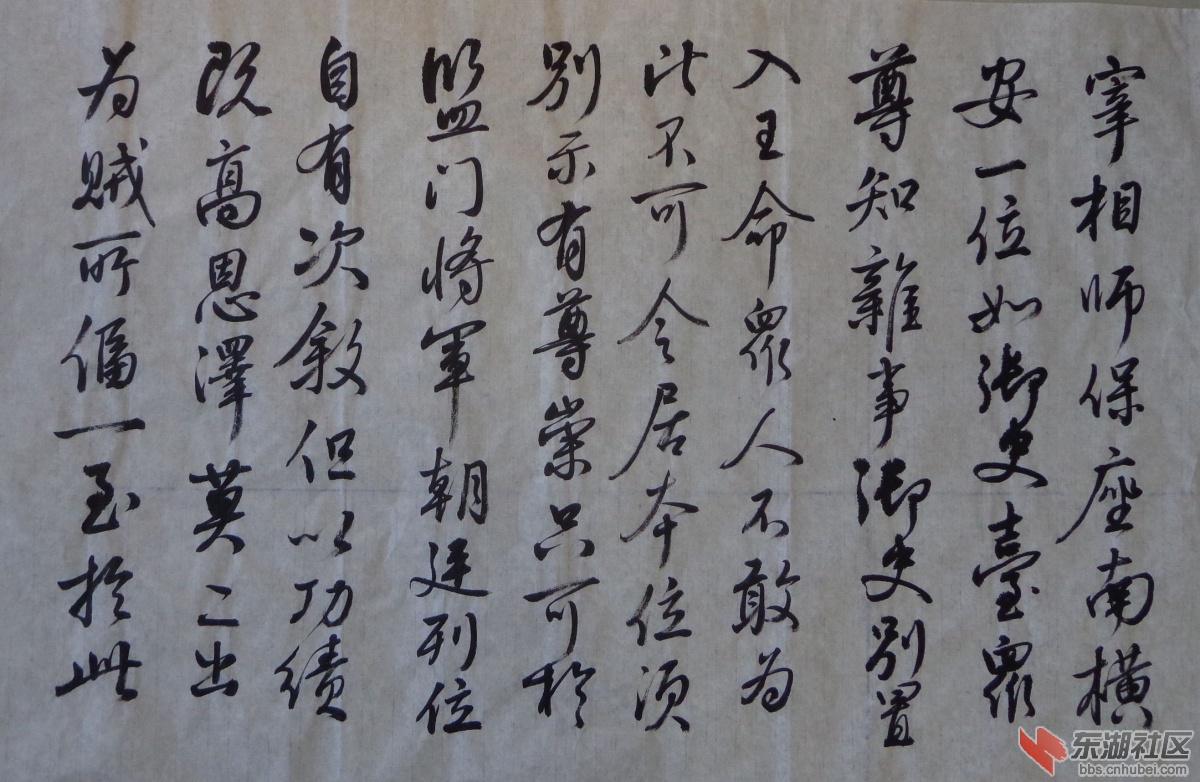 宰相师保座南横
安一位如御史臺衆
尊知雜事御史别置
入王命衆人不敢为
比不可令居本位须
别示有尊崇只可於
監门将军朝廷列位
自有次叙但以功绩
既高恩澤莫二出
为贼所偪一至於此
东湖社区
bbs.cnhubei.com